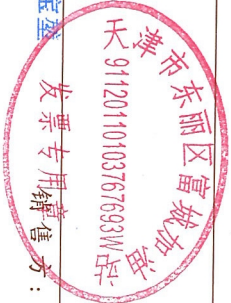 天津市东丽区富城加油站
91120110103767693W
发票专用章
销售方: